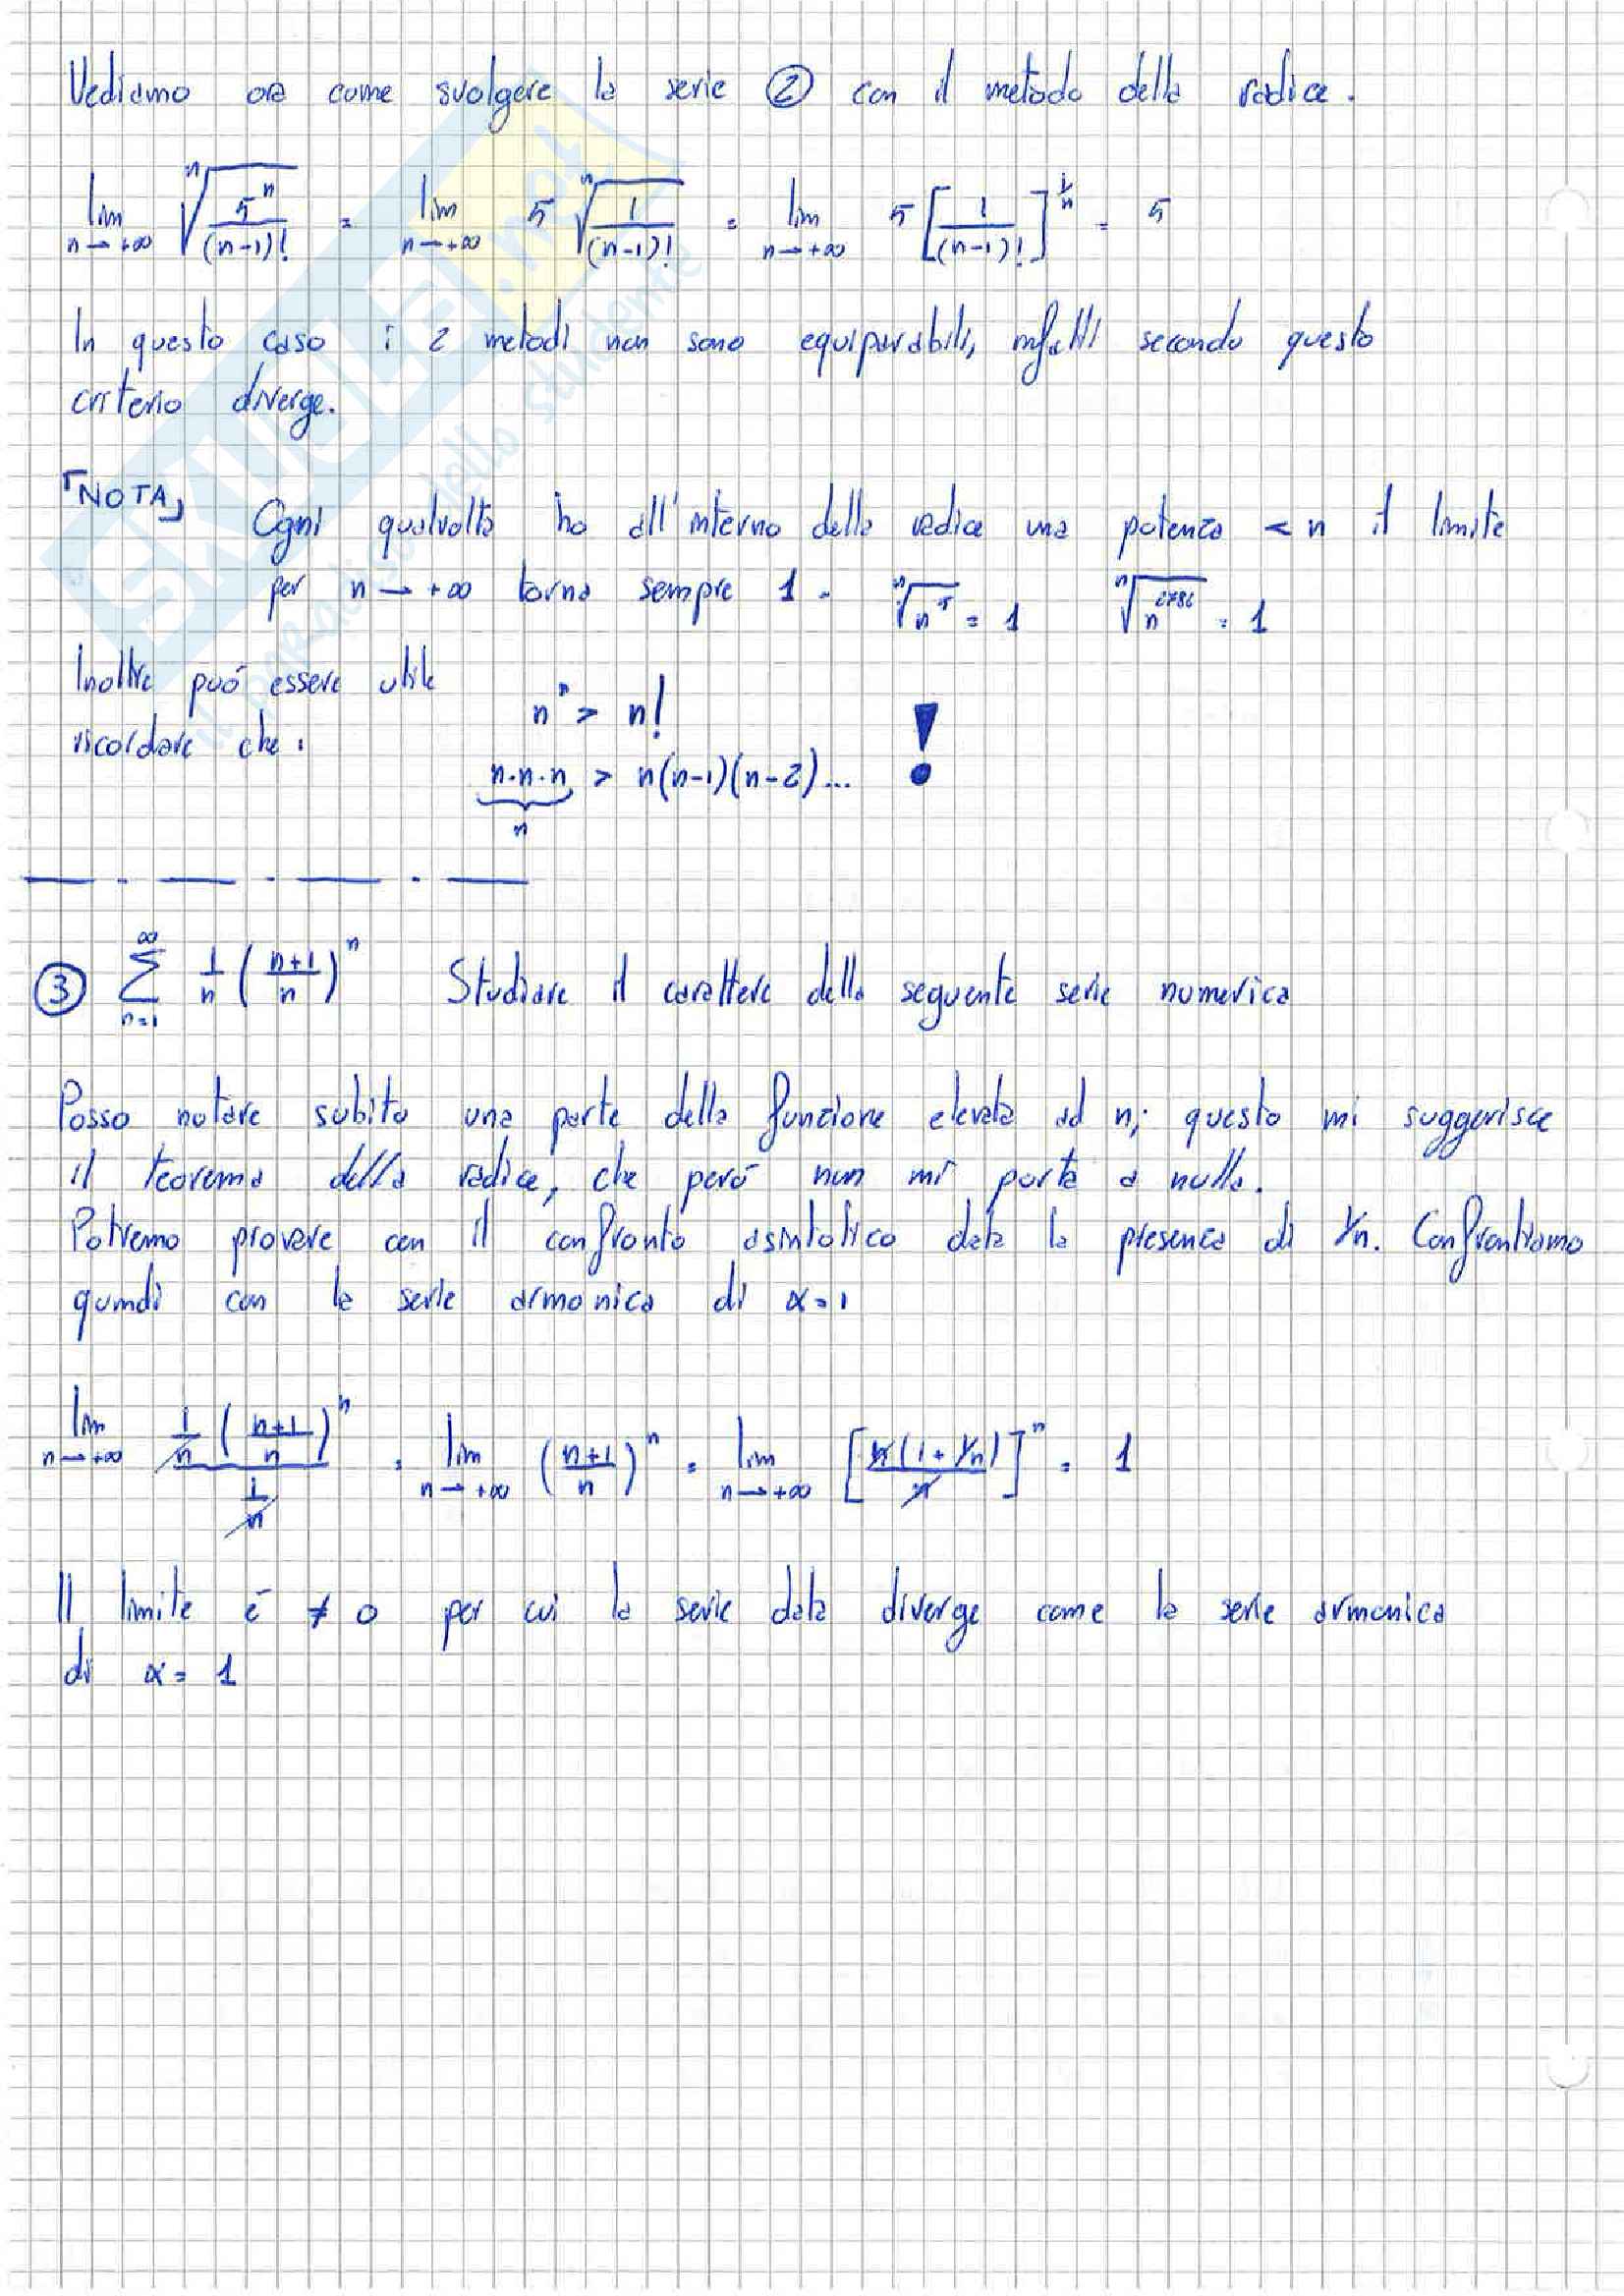 Vediamo ora come svolgere la serie ② con il metodo della radice.
lim n→+∞ ⁿ√(5ⁿ/(n-1)!) = lim n→+∞ 5 ⁿ√(1/(n-1)!) = lim n→+∞ 5 [1/(n-1)!]^(1/n) = 5
In questo caso i 2 metodi non sono equiparabili, infatti secondo questo
criterio diverge.
「NOTA」 Ogni qualvolta ho all'interno della radice una potenza < n il limite
per n → +∞ torna sempre 1. ⁿ√(n⁵) = 1 ⁿ√(n²⁷⁸⁶) = 1
Inoltre può essere utile
ricordare che: nⁿ > n! !
n·n·n > n(n-1)(n-2)...
n
③ ∑ n=1 ∞ 1/n ((n+1)/n)ⁿ Studiare il carattere della seguente serie numerica
Posso notare subito una parte della funzione elevata ad n; questo mi suggerisce
il teorema della radice, che però non mi porta a nulla.
Potremo provare con il confronto asintotico data la presenza di 1/n. Confrontiamo
quindi con la serie armonica di α=1
lim n→+∞ (1/n ((n+1)/n)ⁿ)/(1/n) = lim n→+∞ ((n+1)/n)ⁿ = lim n→+∞ [n(1+1/n)/n]ⁿ = 1
Il limite è ≠ 0 per cui la serie data diverge come la serie armonica
di α = 1
SKUOLA.net
il paradiso dello studente